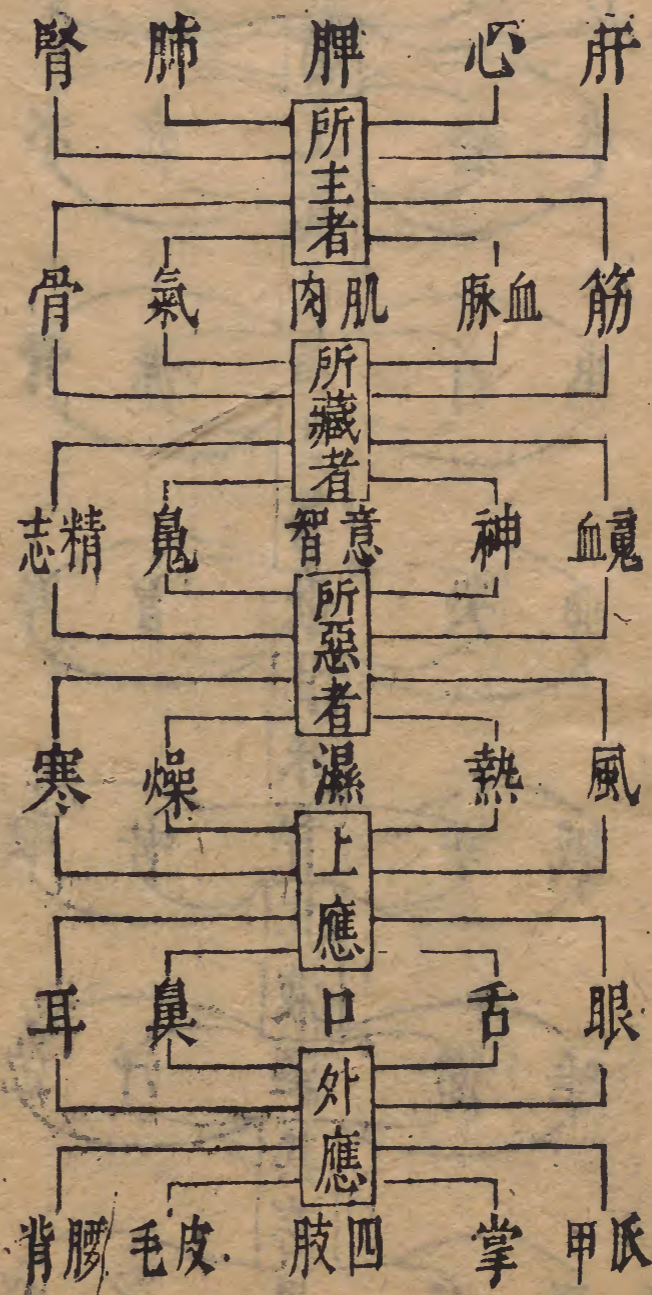 肝 心 脾 肺 腎
所主者
筋 血脉 肌肉 氣 骨
所藏者
魂血 神 意智 魄 精志
所惡者
風 熱 濕 燥 寒
上應
眼 舌 口 鼻 耳
外應
爪甲 掌 四肢 皮毛 腰背